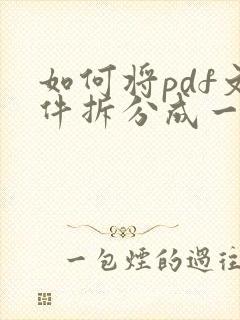 如何将pdf文
件拆分成一
一包煙的過往